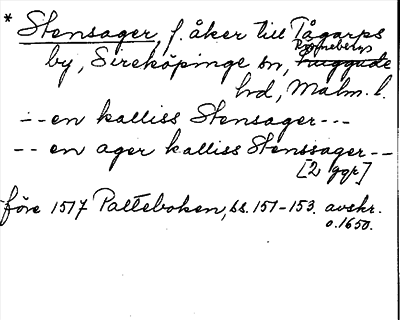 * Stensager, f. åker till Tågarps
Rönnebergs
by, Sireköpinge sn, Luggude
hd, Malm. l.
--- en kalliss Stensager ---
-- en ager kalliss Stenssager --
[2 ggr]
före 1517 Palteboken, ss. 151-153. avskr.
o. 1650.